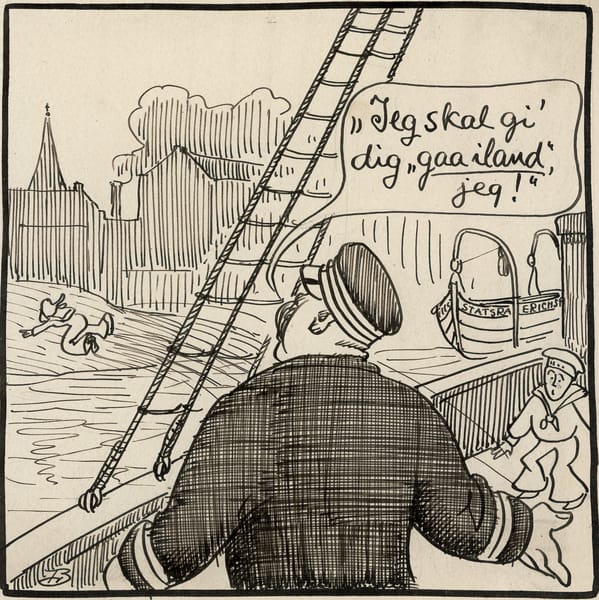 „Jeg skal gi'
dig „gaa iland“,
jeg!“
STATSRA ERICHS